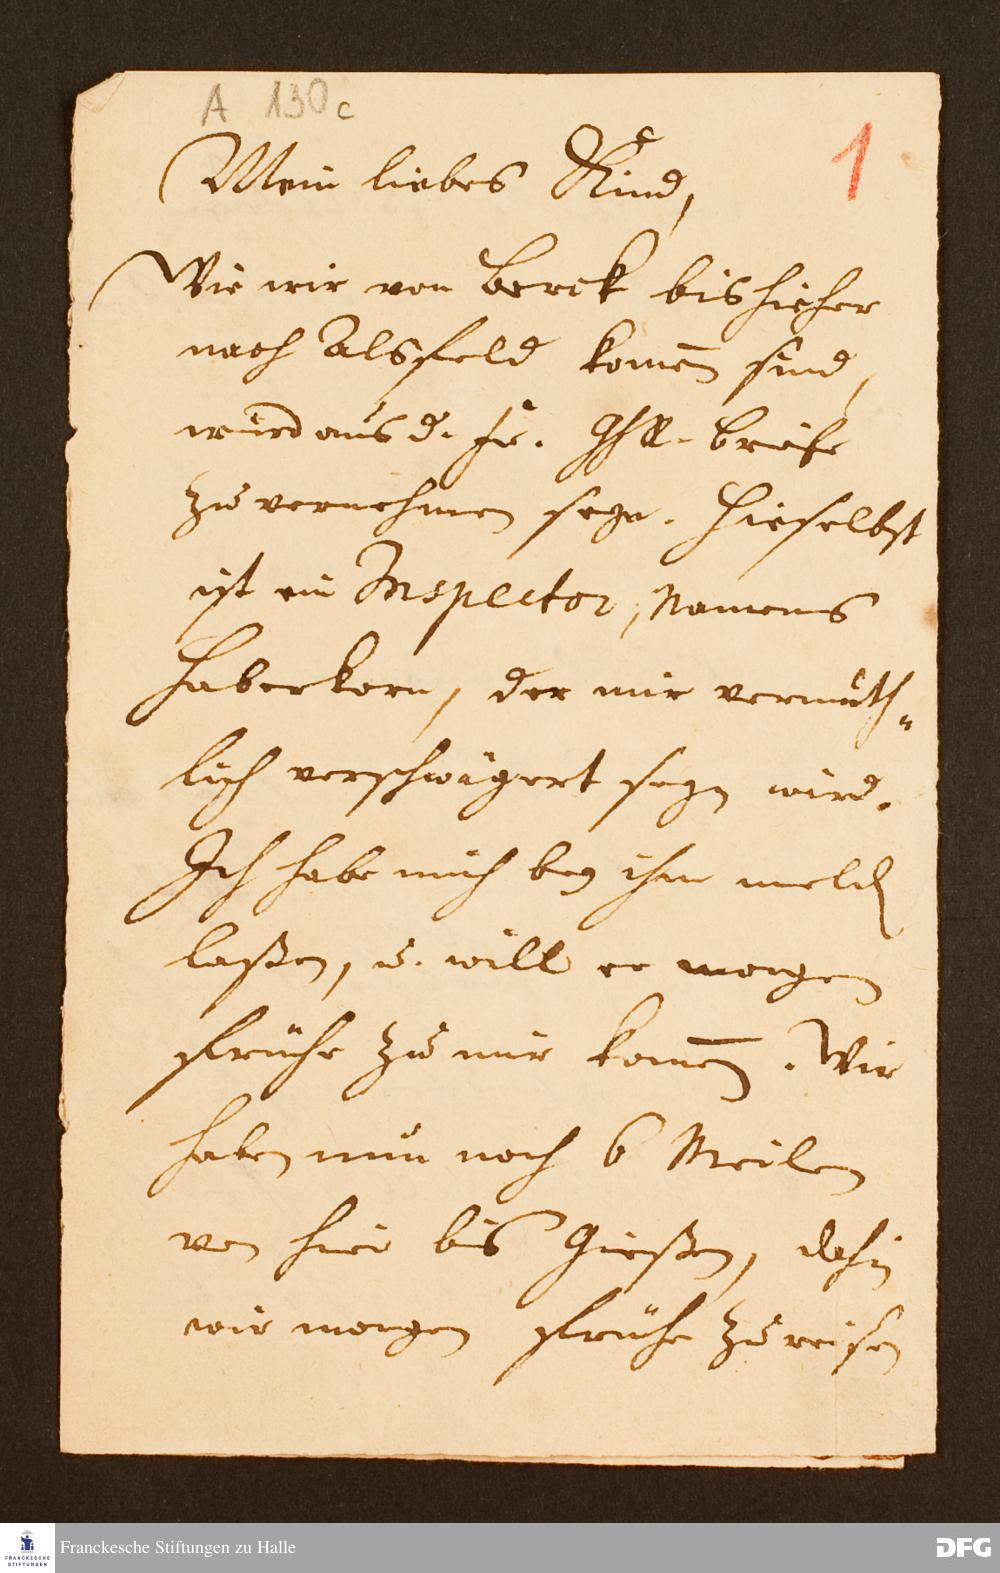 A 130c
1
Mein liebes Kind,
Wie wir von Berck bis hieher
nach Alsfeld komen̄ sind,
wird aus d. Fr. Brife
zu vernehmen seyn. Hieselbst
ist ein Inspector, Namens
Haberkorn, der mir vermuth-
lich verschwägert seyn wird.
Ich habe mich bey ihm melden
laßen, u. will er morgen
frühe zu mir komen̄. Wir
haben nun noch 6 Meilen
von hier bis Gießen, dahin
wir morgen frühe zu reisen
FRANCKESCHE
STIFTUNGEN
Franckesche Stiftungen zu Halle
DFG